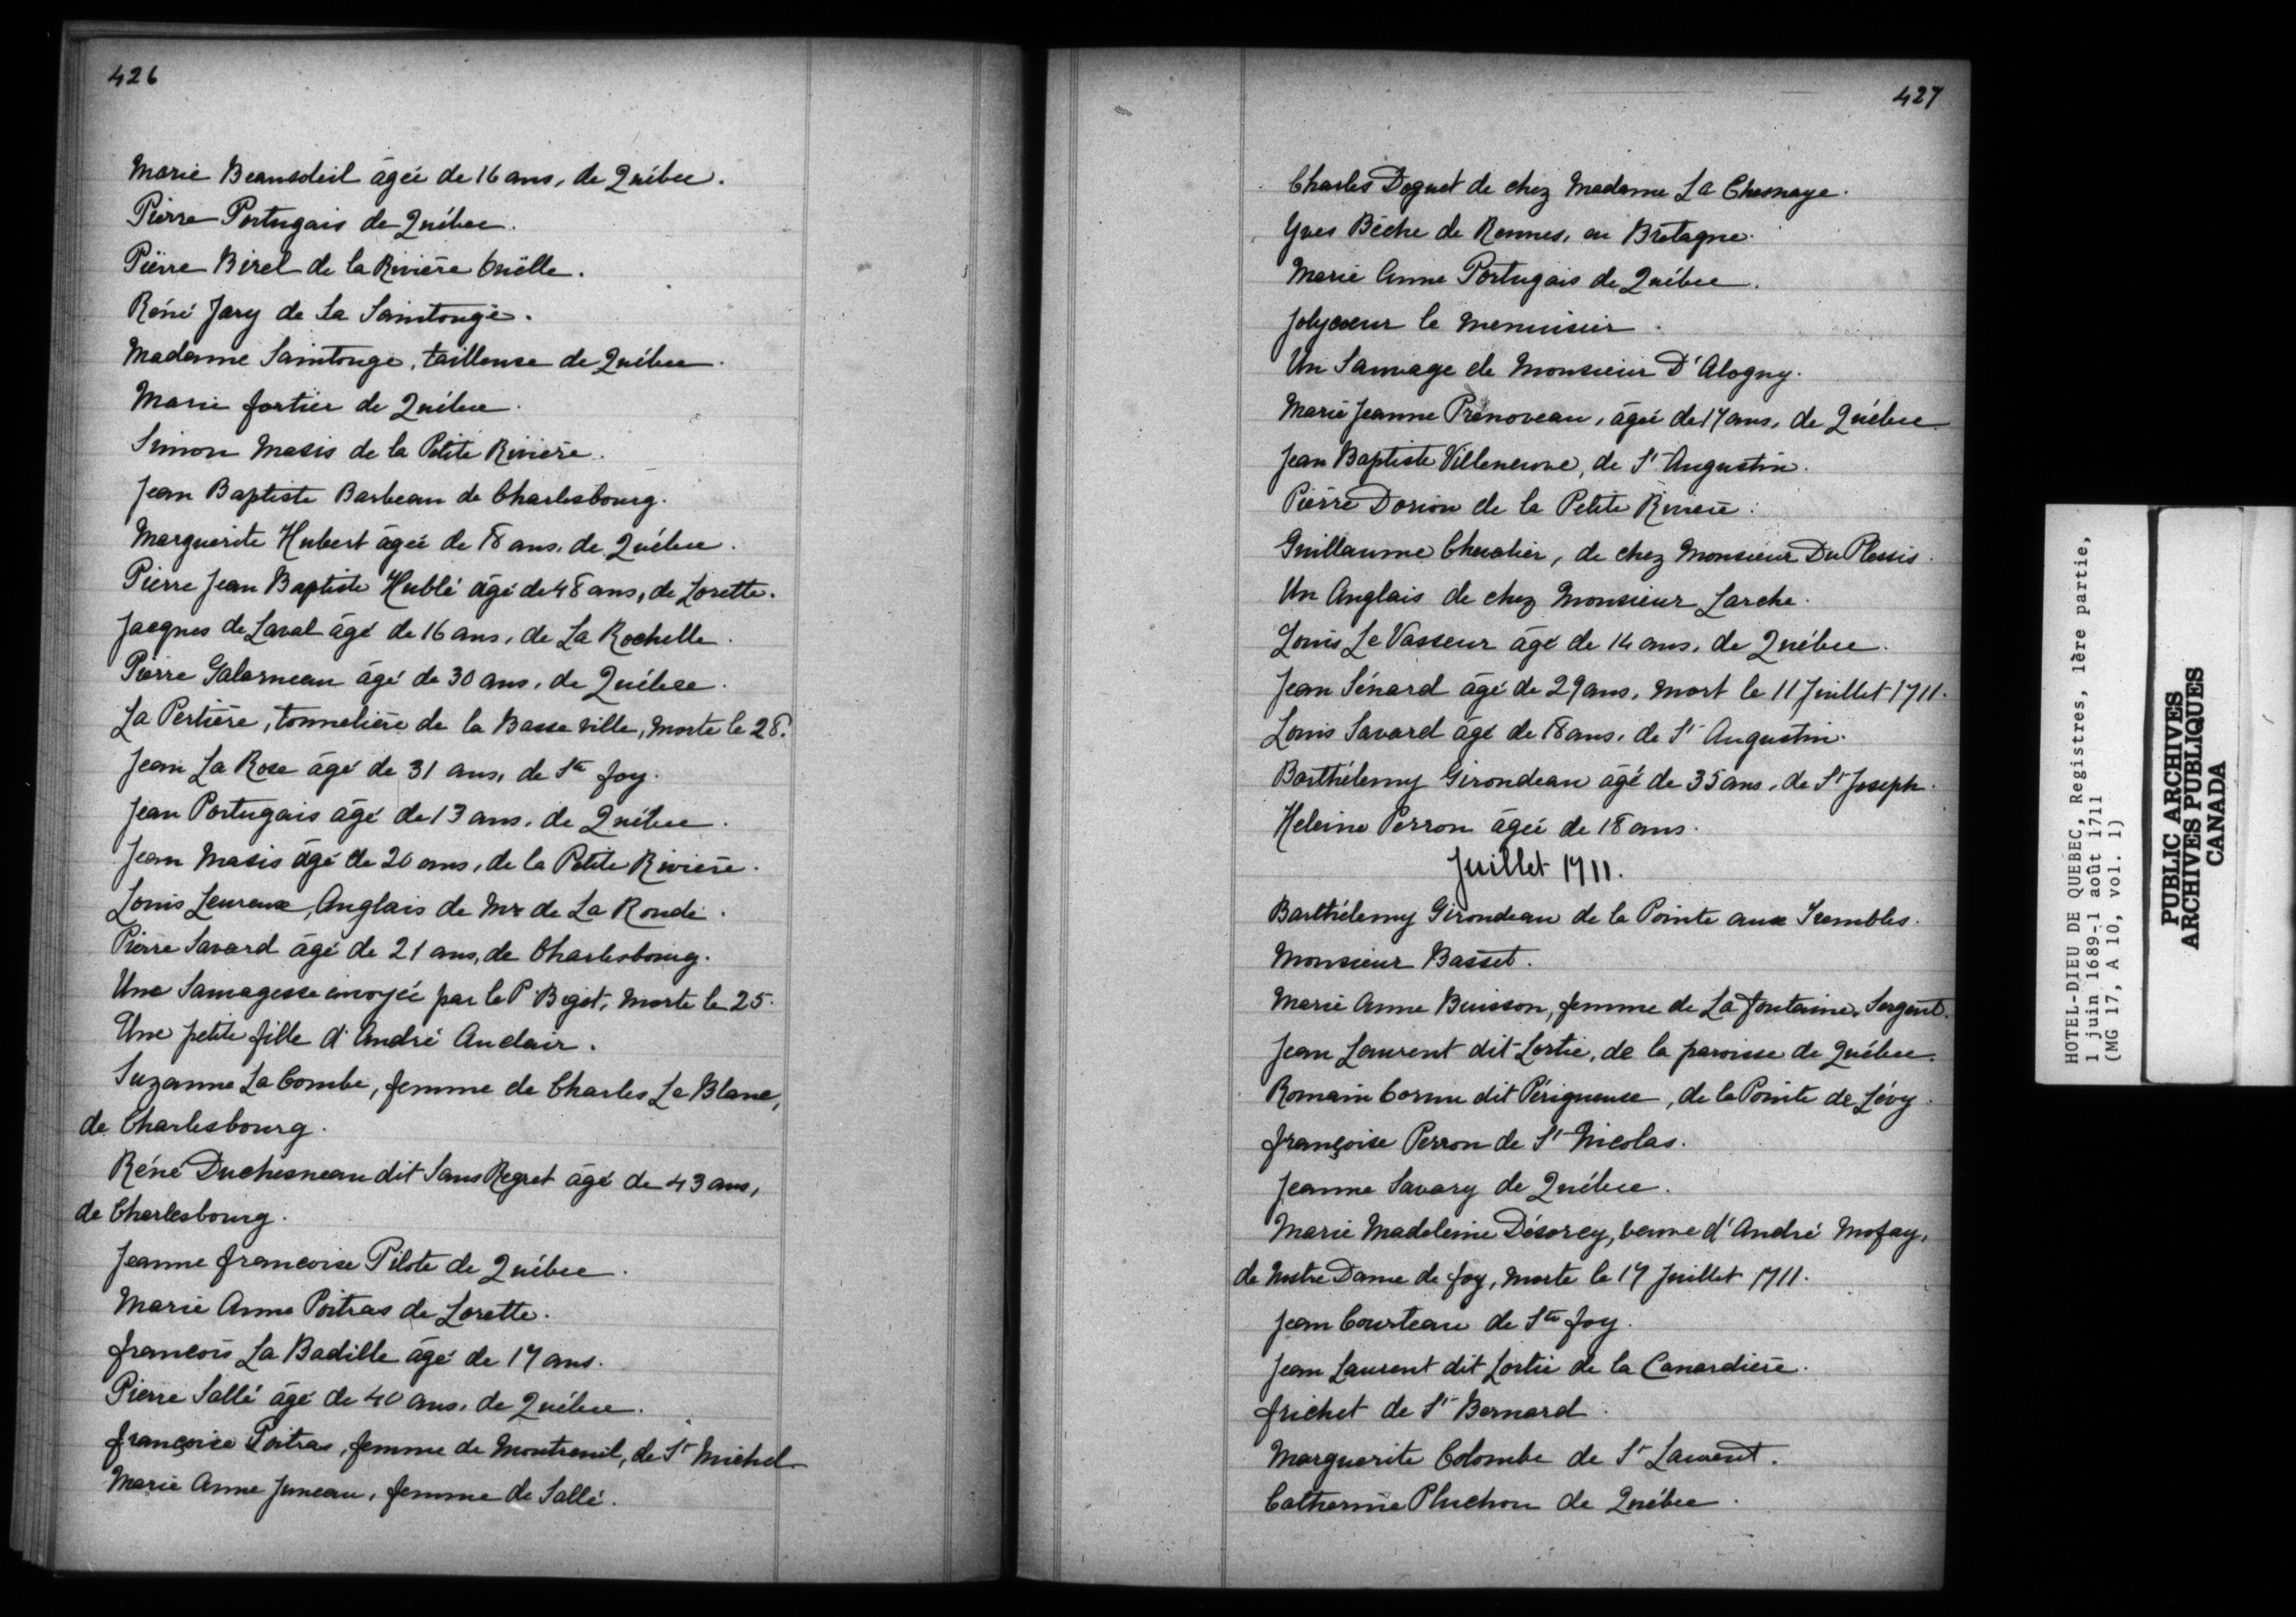 426
Marie Beausoleil âgée de 16 ans, de Québec.
Pierre Portugais de Québec.
Pierre Birel de la Rivière Ouëlle.
Réné Jary de La Saintonge.
Madame Saintonge, tailleuse de Québec.
Marie fortier de Québec.
Simon Masis de la Petite Rivière.
Jean Baptiste Barbeau de Charlesbourg.
Marguerite Hubert âgée de 18 ans, de Québec.
Pierre Jean Baptiste Hublé âgé de 48 ans, de Lorette.
Jacques de Laval âgé de 16 ans, de La Rochelle.
Pierre Galarneau âgé de 30 ans, de Québec.
La Pertière, tonnelière de la Basse ville, morte le 28.
Jean La Rose âgé de 31 ans, de Ste foy.
Jean Portugais âgé de 13 ans, de Québec.
Jean Masis âgé de 20 ans, de la Petite Rivière.
Louis Leureux, Anglais de Mr de La Ronde.
Pierre Savard âgé de 21 ans, de Charlesbourg.
Une Sauvagesse envoyée par le P. Bigot, morte le 25.
Une petite fille d'André Auclair.
Suzanne La Combe, femme de Charles Le Blanc,
de Charlesbourg.
Réné Duchesneau dit Sans Regret âgé de 43 ans,
de Charlesbourg.
Jeanne francoise Pilote de Québec.
Marie Anne Poitras de Lorette.
francois La Badille âgé de 17 ans.
Pierre Sallé âgé de 40 ans, de Québec.
françoise Poitras, femme de Montreuil, de St Michel.
Marie Anne Juneau, femme de Sallé.
427
Charles Doguet de chez Madame La Chesnaye.
Yves Bêche de Rennes, en Bretagne.
Marie Anne Portugais de Québec.
Jolycoeur le menuisier.
Un Sauvage de Monsieur D'Alogny.
Marie Jeanne Prenoveau, âgée de 17 ans, de Québec.
Jean Baptiste Villeneuve, de St Augustin.
Pierre Dorion de la Petite Rivière.
Guillaume Chevalier, de chez Monsieur Du Plessis.
Un Anglais de chez Monsieur Larche.
Louis Le Vasseur âgé de 14 ans, de Québec.
Jean Sénard âgé de 29 ans, mort le 11 Juillet 1711.
Louis Savard âgé de 18 ans, de St Augustin.
Barthélemy Girondeau âgé de 35 ans, de St Joseph.
Heleine Perron âgée de 18 ans.
Juillet 1711.
Barthélemy Girondeau de la Pointe aux Trembles.
Monsieur Basset.
Marie Anne Buisson, femme de La fontaine, Sergent.
Jean Laurent dit Lortie, de la paroisse de Québec.
Romain Cornu dit Périgueux, de la Pointe de Lévy.
françoise Perron de St Nicolas.
Jeanne Savary de Québec.
Marie Madeleine Désorcy, veuve d'André Mofay,
de Nostre Dame de foy, morte le 17 Juillet 1711.
Jean Courteau de Ste foy.
Jean Laurent dit Lortie de la Canardière.
frichet de St Bernard.
Marguerite Colombe de St Laurent.
Catherine Pluchon de Québec.
HOTEL-DIEU DE QUEBEC, Registres, 1ère partie,
1 juin 1689-1 août 1711
(MG 17, A 10, vol. 1)
PUBLIC ARCHIVES
ARCHIVES PUBLIQUES
CANADA